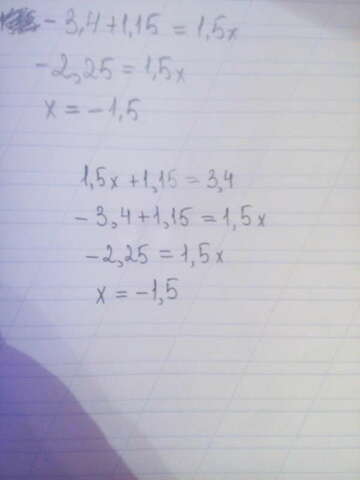 - 3,4 + 1,15 = 1,5x
- 2,25 = 1,5x
x = - 1,5
1,5x + 1,15 = 3,4
- 3,4 + 1,15 = 1,5x
- 2,25 = 1,5x
x = - 1,5